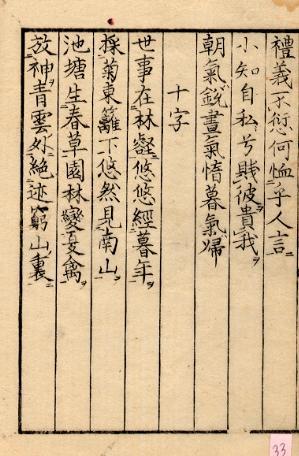 禮義不愆何恤乎人言
小知自私兮賤彼貴我
朝氣鋭晝氣惰暮氣歸
十字
世事在林壑悠悠經暮年
採菊東籬下悠然見南山
池塘生春草園林變禽
放神青雲外絶迹窮山裏
33